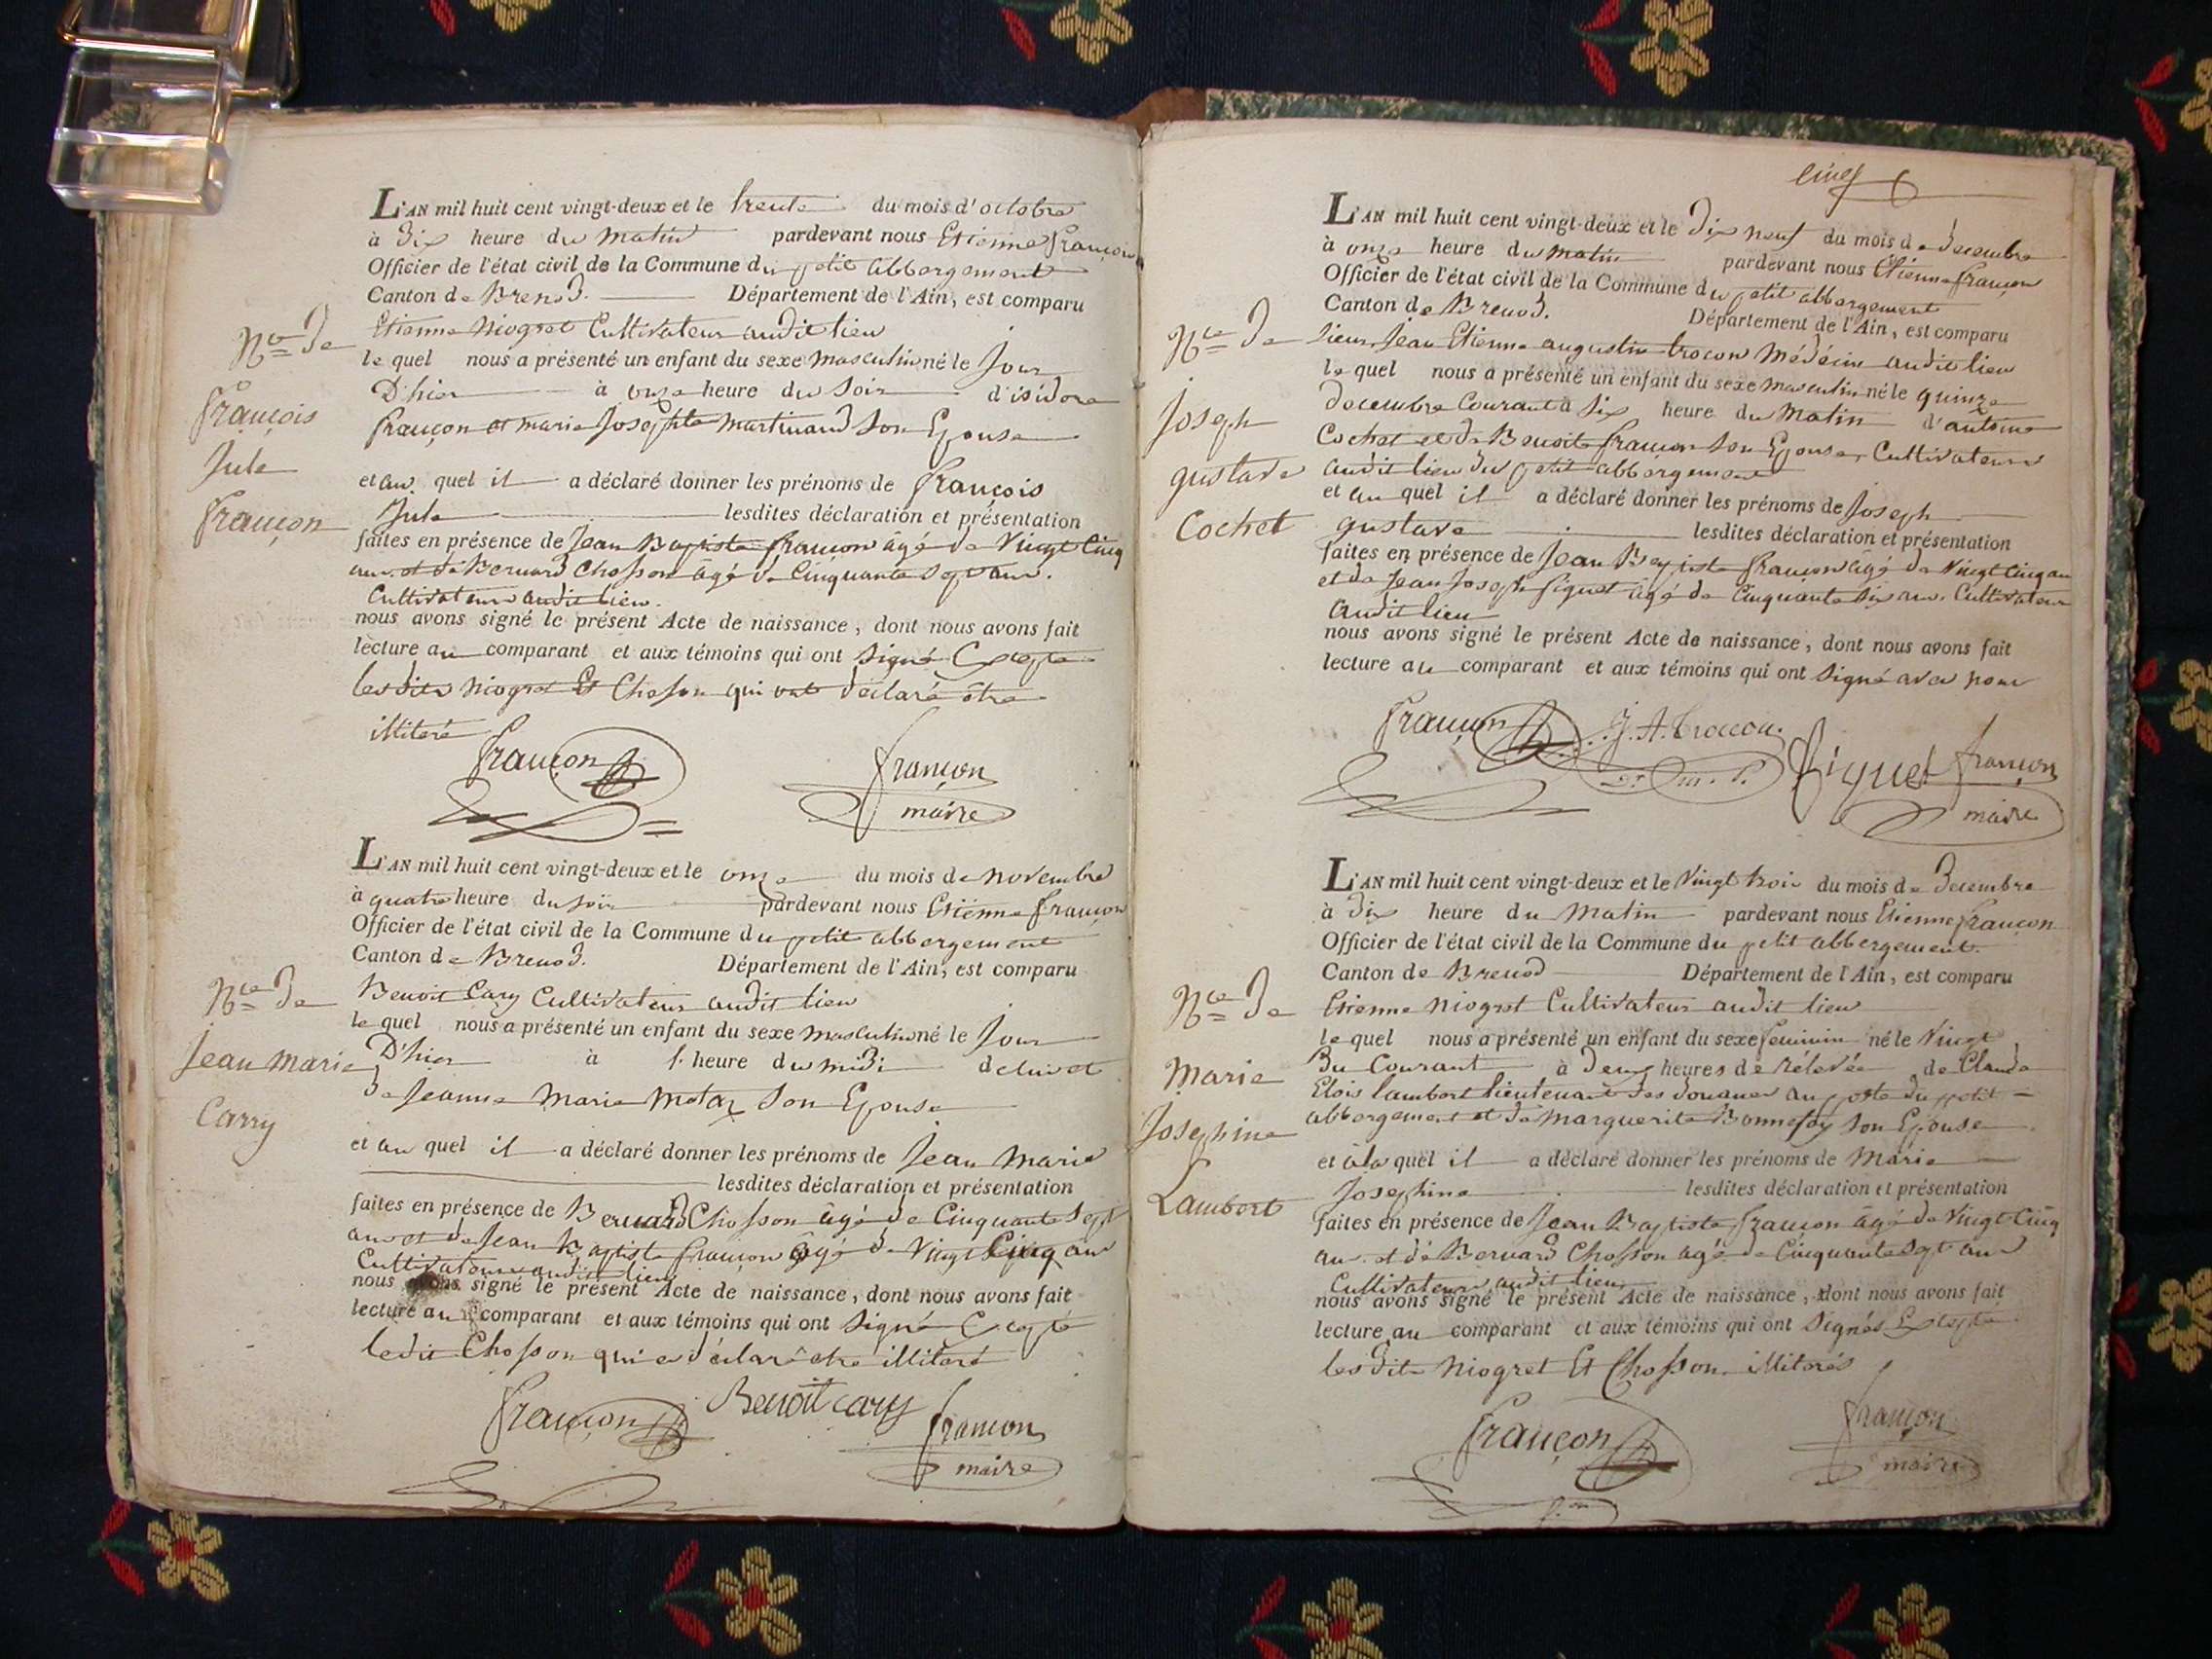 L'AN mil huit cent vingt-deux et le trente du mois d'octobre
à dix heure du matin pardevant nous Etienne françon
Officier de l'état civil de la Commune du petit abbergement
Canton de Brenod. Département de l'Ain, est comparu
Etienne Niogret Cultivateur audit lieu
le quel nous a présenté un enfant du sexe masculin né le Jour
D'hier à onze heure du soir d'isidore
françon et marie Josephte martinand son Epouse
et au quel il a déclaré donner les prénoms de françois
Jule lesdites déclaration et présentation
faites en présence de Jean Baptiste françon âgé de Vingt Cinq
ans et de Bernard Chosson âgé de Cinquante Sept ans.
Cultivateurs audit lieu.
nous avons signé le présent Acte de naissance, dont nous avons fait
lecture au comparant et aux témoins qui ont signé Excepté
lesdits Niogret Et Choson qui ont déclaré être
illiteré
françon
françon
maire
Nce de
françois
Jule
françon
L'AN mil huit cent vingt-deux et le onze du mois de novembre
à quatre heure du soir pardevant nous Etienne françon
Officier de l'état civil de la Commune du petit abbergement
Canton de Brenod. Département de l'Ain, est comparu
Benoit Cary Cultivateur audit lieu
le quel nous a présenté un enfant du sexe masculin né le Jour
D'hier à 1. heure du midi de lui et
de Jeanne Marie Metax son Epouse
et au quel il a déclaré donner les prénoms de Jean Marie
lesdites déclaration et présentation
faites en présence de Bernard Chosson âgé de Cinquante Sept
ans et de Jean Baptiste françon âgé de Vingt Cinq ans
Cultivateurs audit lieu
nous avons signé le présent Acte de naissance, dont nous avons fait
lecture au comparant et aux témoins qui ont signé Excepté
ledit Chosson qui a déclaré être illiteré
françon Benoit cary françon
maire
Nce de
Jean marie
Carry
cinq
L'AN mil huit cent vingt-deux et le Dix neuf du mois de decembre
à onze heure du matin pardevant nous Etienne françon
Officier de l'état civil de la Commune du petit abbergement
Canton de Brenod. Département de l'Ain, est comparu
sieur Jean Etienne augustin trocon Médécin audit lieu
le quel nous a présenté un enfant du sexe masculin né le quinze
decembre Courant à Six heure du Matin d'antoine
Cochet et de Benoite françon son Epouse, Cultivateurs
audit lieu du petit abbergement
et au quel il a déclaré donner les prénoms de Joseph
gustave lesdites déclaration et présentation
faites en présence de Jean Baptiste françon âgé de Vingt Cinq ans
et de Jean Joseph figuet âgé de Cinquante Six ans. Cultivateurs
audit lieu
nous avons signé le présent Acte de naissance, dont nous avons fait
lecture au comparant et aux témoins qui ont signé avec nous
françon J. A. Trocon. figuet françon
maire
Nce de
Joseph
gustave
Cochet
L'AN mil huit cent vingt-deux et le Vingt trois du mois de Decembre
à dix heure du Matin pardevant nous Etienne françon
Officier de l'état civil de la Commune du petit abbergement.
Canton de Brenod Département de l'Ain, est comparu
Etienne Niogret Cultivateur audit lieu
le quel nous a présenté un enfant du sexe feminin né le Vingt
Du Courant à Deux heures de rélevée de Claude
Elois Lambert lieutenant des douanes au poste du petit
abbergement et de marguerite Bonnefoy son Epouse
et à la quel il a déclaré donner les prénoms de Marie
Josephine lesdites déclaration et présentation
faites en présence de Jean Baptiste françon âgé de Vingt Cinq
ans et de Bernard Chosson agé de Cinquante Sept ans
Cultivateurs audit lieu
nous avons signé le présent Acte de naissance, dont nous avons fait
lecture au comparant et aux témoins qui ont signés Excepté
lesdits Niogret Et Chosson illiterés
françon
françon
maire
Nce de
Marie
Josephine
Lambert